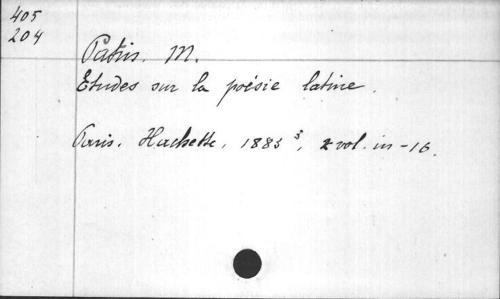 405
204
Patin. M.
Etudes sur la poésie latine.
Paris. Hachette, 1883³, 2 vol. in-16.